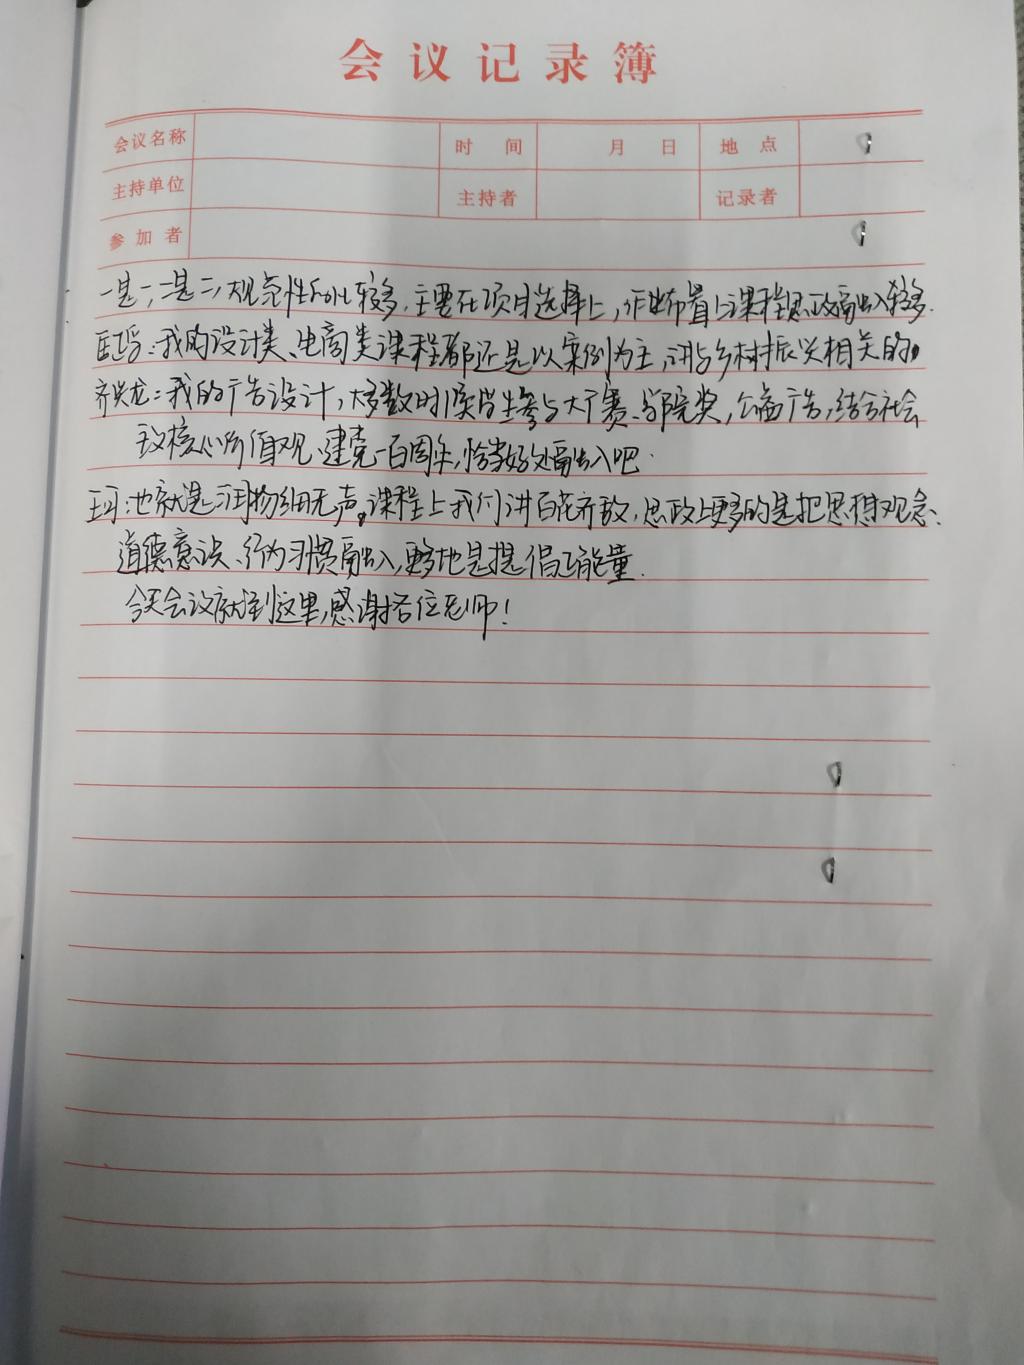 会议记录簿
会议名称 时 间 月 日 地 点
主持单位 主持者 记录者
参加者
一是一,二是二,规范性和比较多,主要在项目选择上,作业布置上课程思政融入较多.
:我的设计类、电商类课程都还是以案例为主,讲与乡村振兴相关的,
齐兴龙:我的广告设计,大多数时候学生参与大广赛、学院奖,公益广告,结合社会
主义核心价值观、建党一百周年,恰当好处融入吧.
王珂:也就是润物细无声,课程上我们讲百花齐放,思政上更多的是把思想观念、
道德意识、行为习惯融入,更多地是提倡正能量.
今天会议就到这里,感谢各位老师!